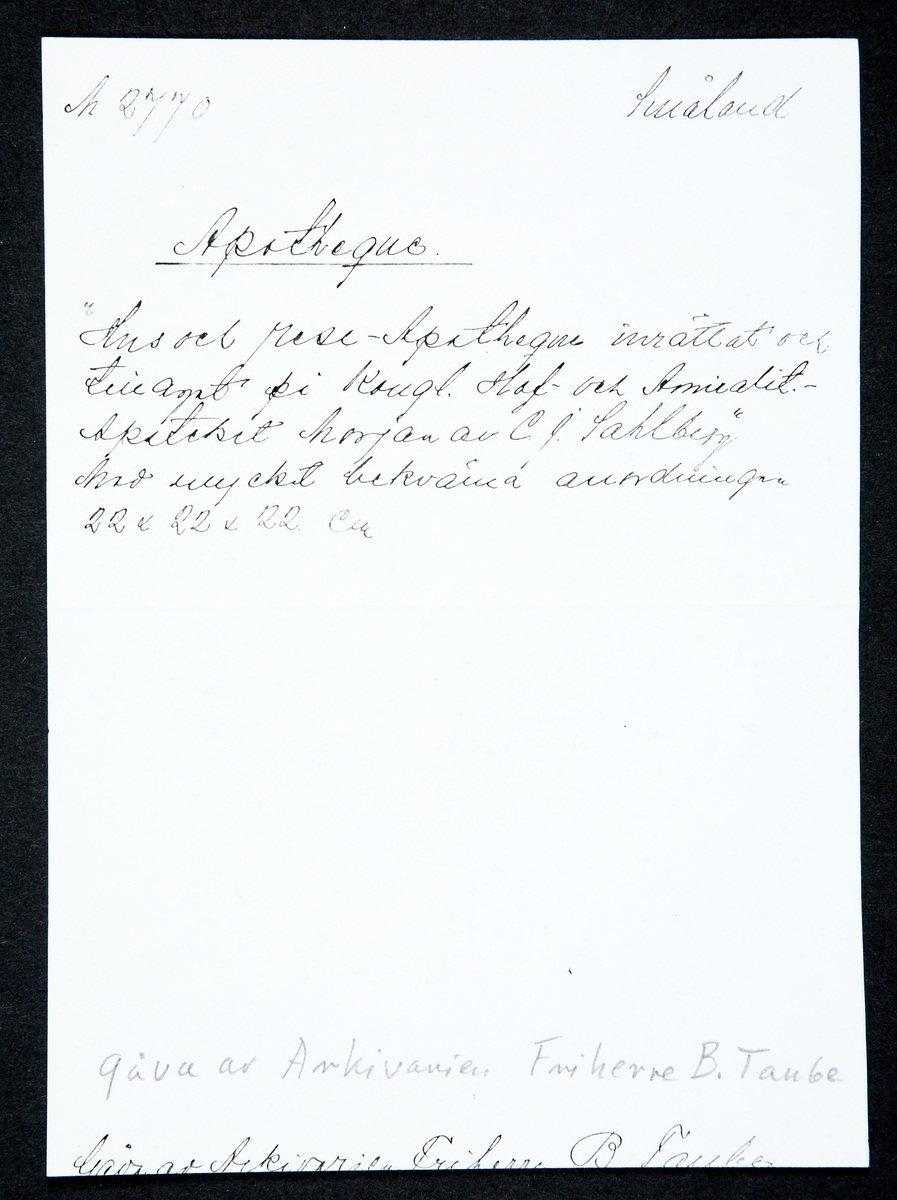 M 2770
Småland
Apotheque.
"Hus och Rese-Apotheque inrättat och
på Kongl. Hof- och Amiralit.-
Apoteket Morjan av C. J. Sahlberg"
Med mycket bekväma anordningar
22 x 22 x 22 Cm
gåva av Arkivarien Friherre B. Taube
Gåva av Arkivarien Friherre B Taube